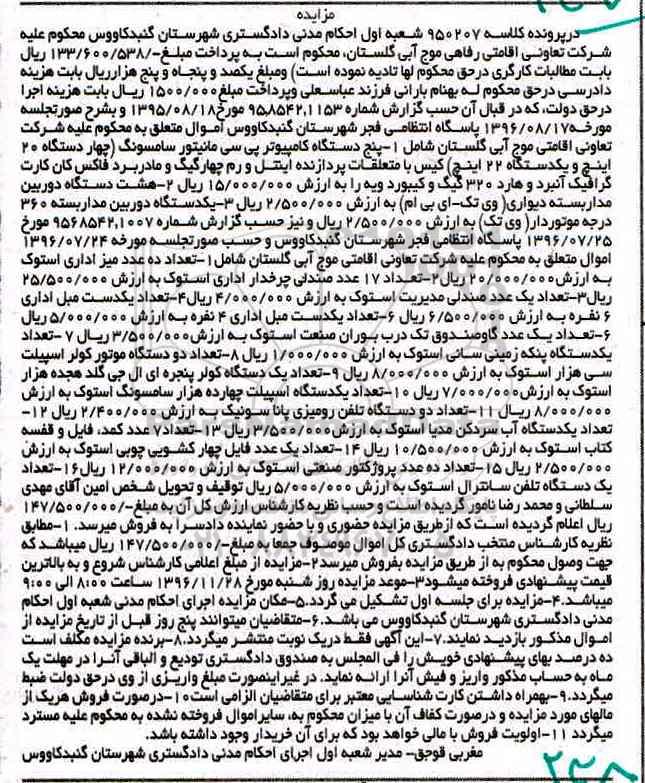 مزایده
درپرونده کلاسه ۹۵۰۲۰۷ شعبه اول احکام مدنی دادگستری شهرستان گنبدکاووس محکوم علیه
شرکت تعاونی اقامتی رفاهی موج آبی گلستان، محکوم است به پرداخت مبلغ-/۱۳۳/۶۰۰/۵۳۸ ریال
بابت مطالبات کارگری درحق محکوم لها تادیه نموده است) ومبلغ یکصد و پنجاه و پنج هزارریال بابت هزینه
دادرسی درحق محکوم له بهنام بارانی فرزند عباسعلی وپرداخت مبلغ ۱۵۰۰/۰۰۰ ریال بابت هزینه اجرا
درحق دولت، که در قبال آن حسب گزارش شماره ۹۵،۸۵۴۲،۱۱۵۳ مورخ۱۳۹۵/۰۸/۱۸ و بشرح صورتجلسه
مورخه۱۳۹۶/۰۸/۱۷ پاسگاه انتظامی فجر شهرستان گنبدکاووس اموال متعلق به محکوم علیه شرکت
تعاونی اقامتی موج آبی گلستان شامل ۱-پنج دستگاه کامپیوتر پی سی مانیتور سامسونگ (چهار دستگاه ۲۰
اینچ و یکدستگاه ۲۲ اینچ) کیس با متعلقات پردازنده اینتل و رم چهارگیگ و مادربرد فاکس کان کارت
گرافیک آنبرد و هارد ۳۲۰ گیگ و کیبورد ویه را به ارزش ۱۵/۰۰۰/۰۰۰ ریال ۲-هشت دستگاه دوربین
مداربسته دیواری( وی تک-ای بی ام) به ارزش ۲/۵۰۰/۰۰۰ ریال ۳-یکدستگاه دوربین مداربسته ۳۶۰
درجه موتوردار( وی تک) به ارزش ۲/۵۰۰/۰۰۰ ریال و نیز حسب گزارش شماره ۹۵۶۸۵۴۲،۱۰۰۷ مورخ
۱۳۹۶/۰۷/۲۵ پاسگاه انتظامی فجر شهرستان گنبدکاووس و حسب صورتجلسه مورخه ۱۳۹۶/۰۷/۲۴
اموال متعلق به محکوم علیه شرکت تعاونی اقامتی موج آبی گلستان شامل۱-تعداد ده عدد میز اداری استوک
به ارزش۲۰/۰۰۰/۰۰۰ ریال۲-تعداد ۱۷ عدد صندلی چرخدار اداری استوک به ارزش ۲۵/۵۰۰/۰۰۰
ریال۳-تعداد یک عدد صندلی مدیریت استوک به ارزش ۴/۰۰۰/۰۰۰ ریال۴-تعداد یکدست مبل اداری
۶ نفره به ارزش ۶/۵۰۰/۰۰۰ ریال ۶-تعداد یکدست مبل اداری ۴ نفره به ارزش ۵/۰۰۰/۰۰۰ ریال
۶-تعداد یک عدد گاوصندوق تک درب بوران صنعت استوک به ارزش۳/۵۰۰/۰۰۰ ریال ۷-تعداد
یکدستگاه پنکه زمینی سانی استوک به ارزش ۱/۰۰۰/۰۰۰ ریال ۸-تعداد دو دستگاه موتور کولر اسپیلت
سی هزار استوک به ارزش ۸/۰۰۰/۰۰۰ ریال ۹-تعداد یک دستگاه کولر پنجره ای ال جی گلد هجده هزار
استوک به ارزش۷/۰۰۰/۰۰۰ ریال ۱۰-تعداد یکدستگاه اسپیلت چهارده هزار سامسونگ استوک به ارزش
۸/۰۰۰/۰۰۰ ریال ۱۱-تعداد دو دستگاه تلفن رومیزی پانا سونیک به ارزش ۲/۴۰۰/۰۰۰ ریال ۱۲-
تعداد یکدستگاه آب سردکن صبا استوک به ارزش ۳/۵۰۰/۰۰۰ ریال ۱۳-تعداد۷ عدد کمد، فایل و قفسه
کتاب استوک به ارزش ۱۰/۵۰۰/۰۰۰ ریال ۱۴-تعداد یک عدد فایل چهار کشویی چوبی استوک به ارزش
۲/۵۰۰/۰۰۰ ریال ۱۵-تعداد ده عدد پروژکتور صنعتی استوک به ارزش ۱۲/۰۰۰/۰۰۰ ریال۱۶-تعداد
یک دستگاه تلفن سانترال استوک به ارزش ۵/۰۰۰/۰۰۰ ریال توقیف و تحویل شخص امین آقای مهدی
سلطانی و محمد رضا نامور گردیده است وحسب نظریه کارشناس ارزش کل آن به مبلغ-/۱۴۷/۵۰۰/۰۰۰
ریال اعلام گردیده است که ازطریق مزایده حضوری و با حضور نماینده دادسرا به فروش میرسد. ۱-مطابق
نظریه کارشناس منتخب دادگستری کل اموال موصوف جمعا به مبلغ-/۱۴۷/۵۰۰/۰۰۰ ریال میباشد که
جهت وصول محکوم به از طریق مزایده بفروش میرسد۲-مزایده از مبلغ اعلامی کارشناس شروع و به بالاترین
قیمت پیشنهادی فروخته میشود۳-موعد مزایده روز شنبه مورخ ۱۳۹۶/۱۱/۲۸ ساعت ۸:۰۰ الی ۹:۰۰
میباشد.۴-مزایده برای جلسه اول تشکیل می گردد.۵-مکان مزایده اجرای احکام مدنی شعبه اول احکام
مدنی دادگستری شهرستان گنبدکاووس می باشد.۶-متقاضیان میتوانند پنج روز قبل از تاریخ مزایده از
اموال مذکور بازدید نمایند.۷-این آگهی فقط دریک نوبت منتشر میگردد.۸-برنده مزایده مکلف است
ده درصد بهای پیشنهادی خویش را فی المجلس به صندوق دادگستری تودیع و الباقی آنرا در مهلت یک
ماه به حساب مذکور واریز و فیش آنرا ارائه نماید. در غیراینصورت مبلغ واریزی از وی درحق دولت ضبط
میگردد.۹-بهمراه داشتن کارت شناسایی معتبر برای متقاضیان الزامی است۱۰-درصورت فروش هریک از
مالهای مورد مزایده و درصورت کفاف آن با میزان محکوم به، سایراموال فروخته نشده به محکوم علیه مسترد
میگردد ۱۱-اولویت فروش با مالی خواهد بود که برای آن خریدار وجود داشته باشد.
مغربی قوجق- مدیر شعبه اول اجرای احکام مدنی دادگستری شهرستان گنبدکاووس